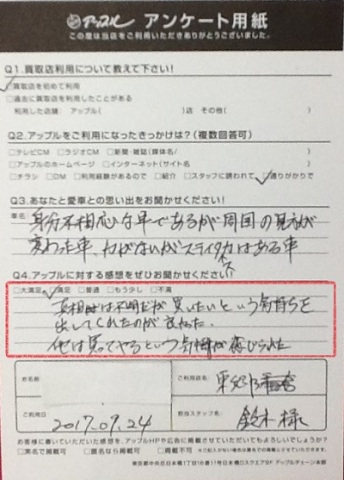 アップル アンケート用紙
この度は当店をご利用いただきありがとうございました。
Q1.買取店利用について教えて下さい!
□買取店を初めて利用
□過去に買取店を利用したことがある
利用した店舗: アップル( )店 その他( )
Q2.アップルをご利用になったきっかけは?(複数回答可)
□テレビCM □ラジオCM □新聞・雑誌(媒体名/ )
□アップルのホームページ □インターネット(サイト名 )
□チラシ □DM □利用経験があるので □紹介 □スタッフに誘われて □通りがかりで
Q3.あなたと愛車との思い出をお聞かせください!
車名
身分不相応な車であるが周囲の見方が
変わった車、力がないがステイタスはある車
Q4.アップルに対する感想をぜひお聞かせください!
□大満足 □満足 □普通 □もう少し □不満
真相は不明だが買いたいという気持ちを
出してくれたのが良かった。
他は買ってやるという気持が感じられた
姓名前
ご利用店名 東郷
ご利用日 2017.09.24
担当スタッフ名 鈴木様
お客様に書いていただいた感想を、アップルHPや広告に掲載させていただいてもよろしいでしょうか?
□実名で掲載可 □匿名なら掲載可 □不可